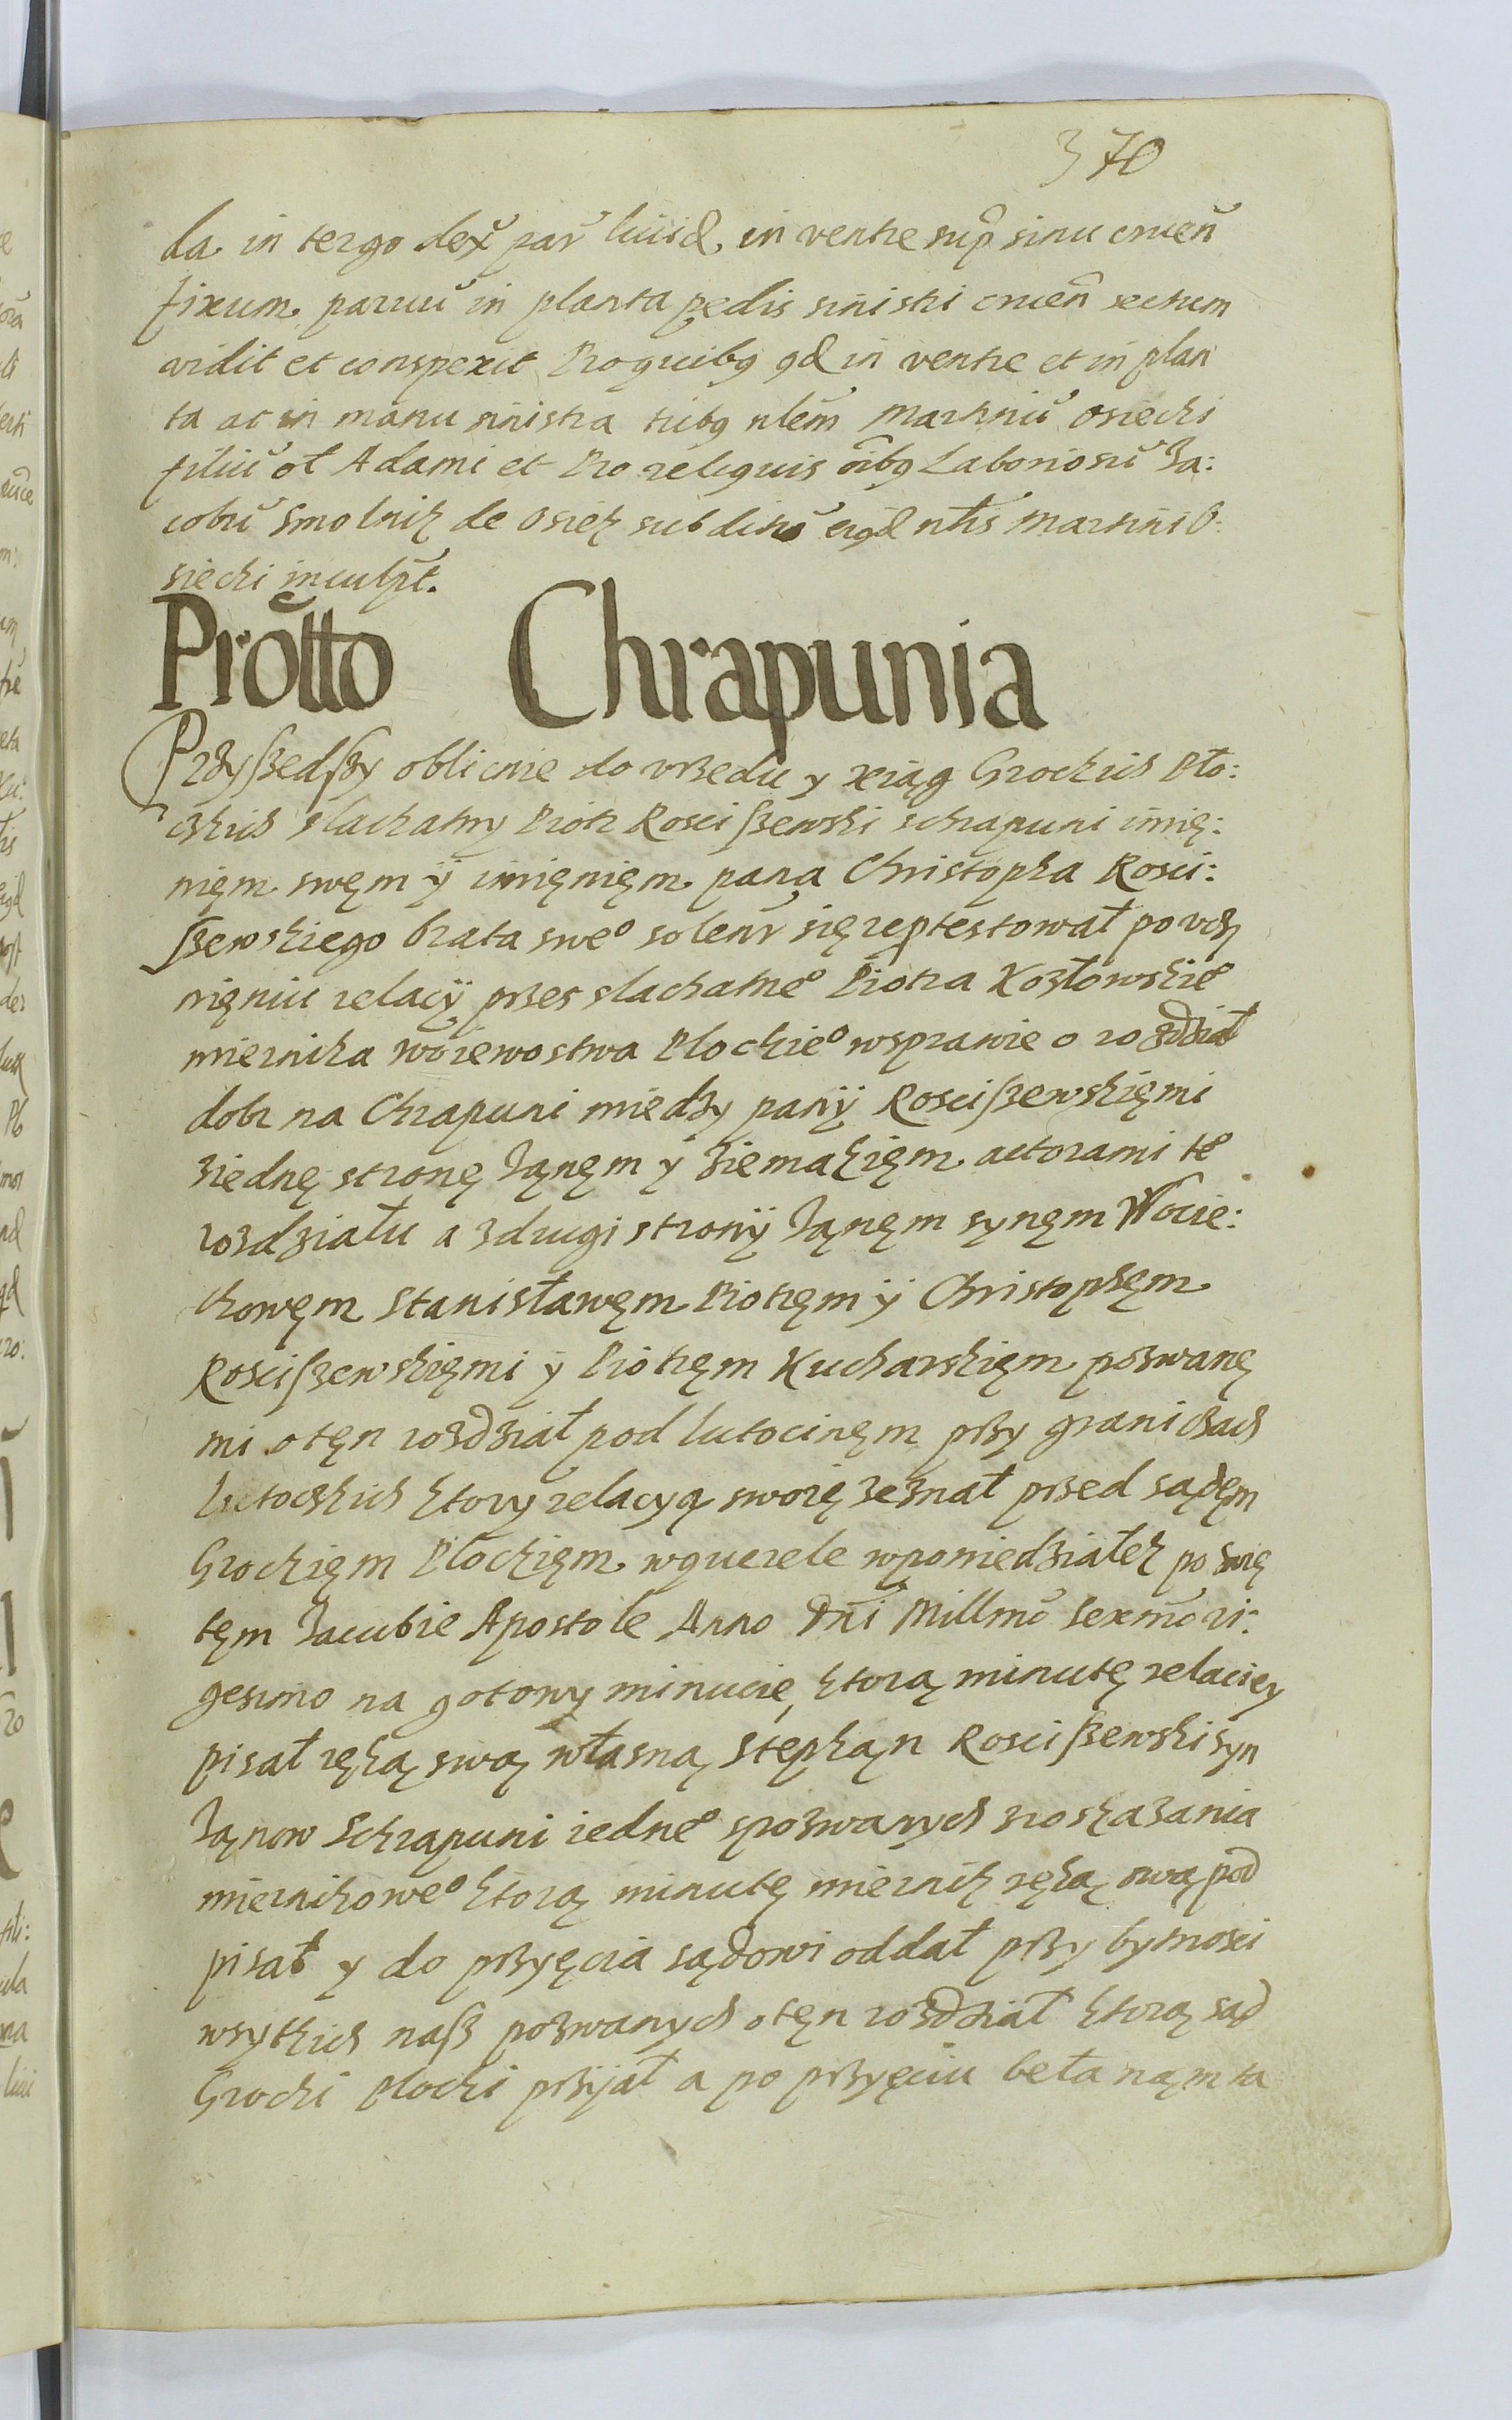 370
da in tergo dex̃ par̃ liuid in ventre sup̃ sinu cruẽn
fixum paruũ in planta pedis sinistri cruẽn sectum
vidit et conspexit Pro quibq qd in ventre et in plan
ta ac in manu sinistra tribq nlẽm Martinũ Osiecki
filiũ ol Adami et Pro reliquis oĩbq Laboriosũ Ja:
cobũ Smolnik de Osiek subditũ eiqd nłis Martini O:
siecki inculpt.
Prõtto Chrapunia
Przyszedszy oblicnie do vrzedu y xiąg Grockich Pło:
ckich slachatny Piotr Rosciszewski schrapuni imię:
nięm swęm ÿ imięnięm pana Christopha Rosci:
szewskiego brata sweº solenr się reptestował po vcz
nięniu relacÿ przes slachatneº Piotra Kozłowskieº
miernika woiewostwa Plockieº wsprawie o rozdział
dobr na Chrapuni miedzy panÿ Rosciszewskięmi
ziednę stronę Janęm ÿ Ziemakięm actorami teº
rozdziału a zdrugi stronÿ Janęm synęm Wocie:
chowęm Stanisławęm Piotręm ÿ Christophęm
Rosciszewskięmi ÿ Piotręm Kucharskięm pozwanę
mi o tęn rozdział pod lutocinęm przy graniczach
Lutockich ktory relacyą swoię zeznał przed sądęm
Grockięm Płockięm w querele wponiedziałek po Swię
tęm Jacubie Apostole Anno Dñi Millmõ Sexmõ vi:
gesimo na gotowy minucie, ktorą minutę relaciey
pisał ręką swą własną Stephąn Rosciszewski syn
Janow Schrapuni iedneº spozwanych zroskazania
miernikoweº ktorą minutę miernik ręką swą pod
pisał y do przyęcia sądowi oddał przy bytnosci
wsytkich nasz pozwanych o tęn rozdział ktorą sąd
Grocki płocki przijał a po przyęciu beła nąm ta